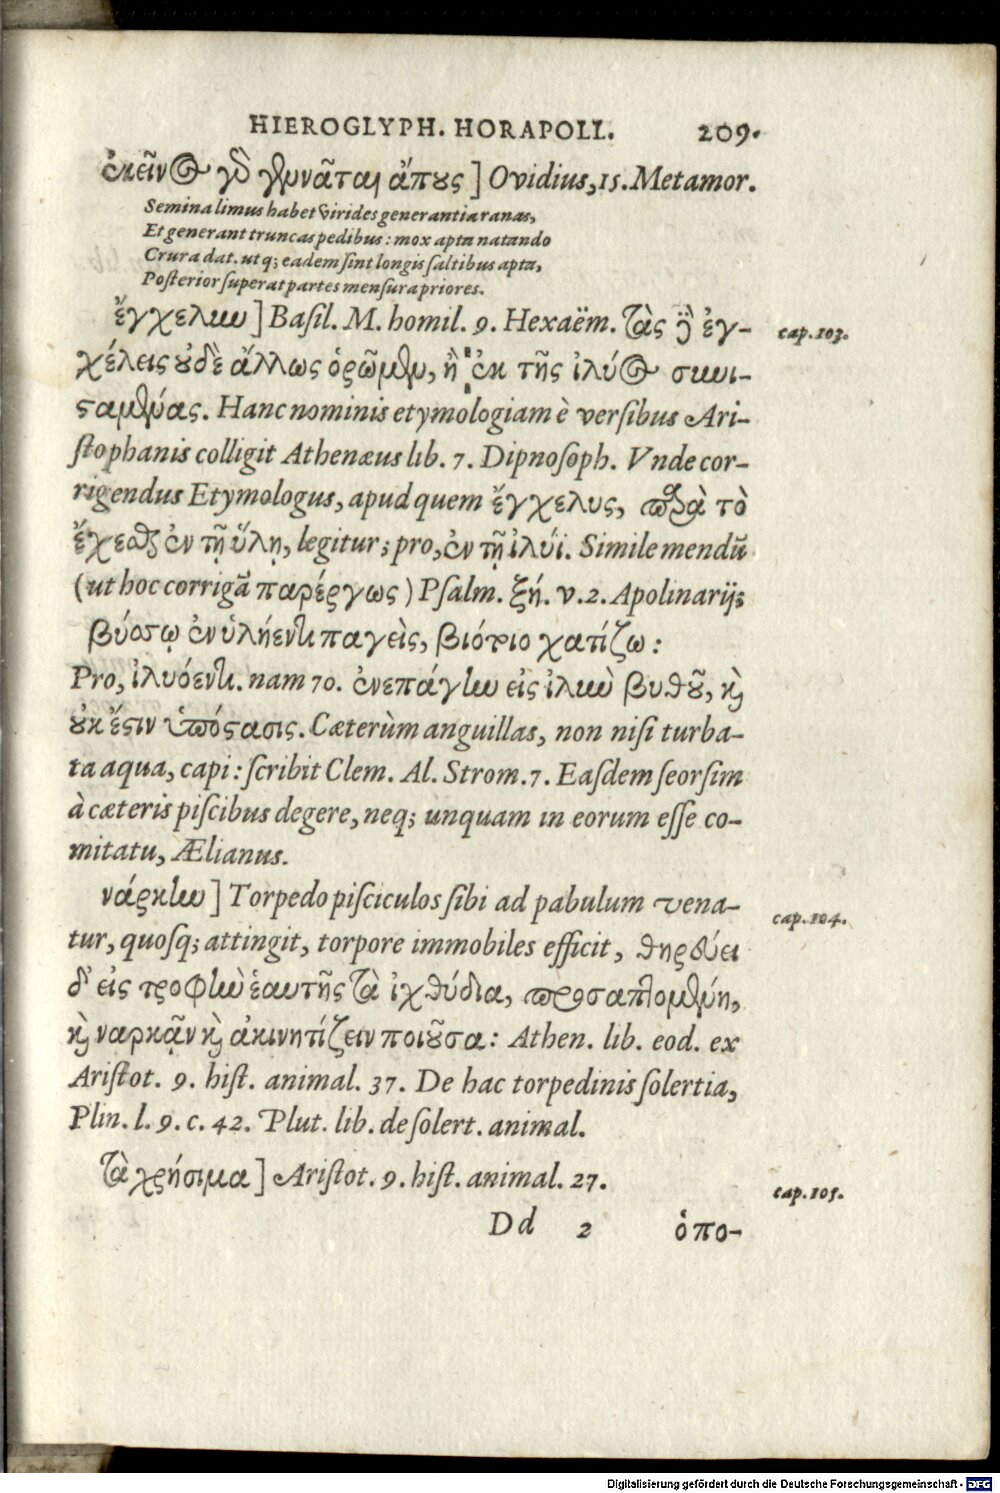 HIEROGLYPH. HORAPOLL. 209.
ἐκεῖνος γὸ γεννᾶται ἄπους] Ovidius, 15. Metamor.
Semina limus habet virides generantia ranas,
Et generant truncas pedibus: mox apta natando
Crura dat. utq; eadem sint longis saltibus apta,
Posterior superat partes mensura priores.
ἔγχελιω] Basil. M. homil. 9. Hexaëm. τὰς ἢ ἐγ-
cap. 103.
χέλεις οὐδὲ ἄλλως ὁρῶμεν, ἢ ἐκ τῆς ἰλύος συνι-
σταμένας. Hanc nominis etymologiam è versibus Ari-
stophanis colligit Athenæus lib. 7. Dipnosoph. Vnde cor-
rigendus Etymologus, apud quem ἔγχελυς, παρὰ τὸ
ἔχεσθαι ἐν τῇ ὕλῃ, legitur; pro, ἐν τῇ ἰλύϊ. Simile mendũ
(ut hoc corrigã παρέργως) Psalm. ξή. v. 2. Apolinarij;
βύσσῳ ἐν ὑλήεντι παγεὶς, βιότοιο χατίζω:
Pro, ἰλυόεντι. nam 70. ἐνεπάγην εἰς ἰλιὼ βυθοῦ, καὶ
οὐκ ἔστιν ὑπόστασις. Cæterùm anguillas, non nisi turba-
ta aqua, capi: scribit Clem. Al. Strom. 7. Easdem seorsim
à cæteris piscibus degere, neq; unquam in eorum esse co-
mitatu, Ælianus.
νάρκην] Torpedo pisciculos sibi ad pabulum vena-
cap. 104.
tur, quosq; attingit, torpore immobiles efficit, θηρεύει
δ' εἰς τροφὴν ἑαυτῆς τὰ ἰχθύδια, προσαπτομένη,
καὶ ναρκᾷν καὶ ἀκινητίζειν ποιοῦσα: Athen. lib. eod. ex
Aristot. 9. hist. animal. 37. De hac torpedinis solertia,
Plin. l. 9. c. 42. Plut. lib. de solert. animal.
τὰ χρήσιμα] Aristot. 9. hist. animal. 27.
cap. 105.
Dd 2 ὁπο-
Digitalisierung gefördert durch die Deutsche Forschungsgemeinschaft - DFG